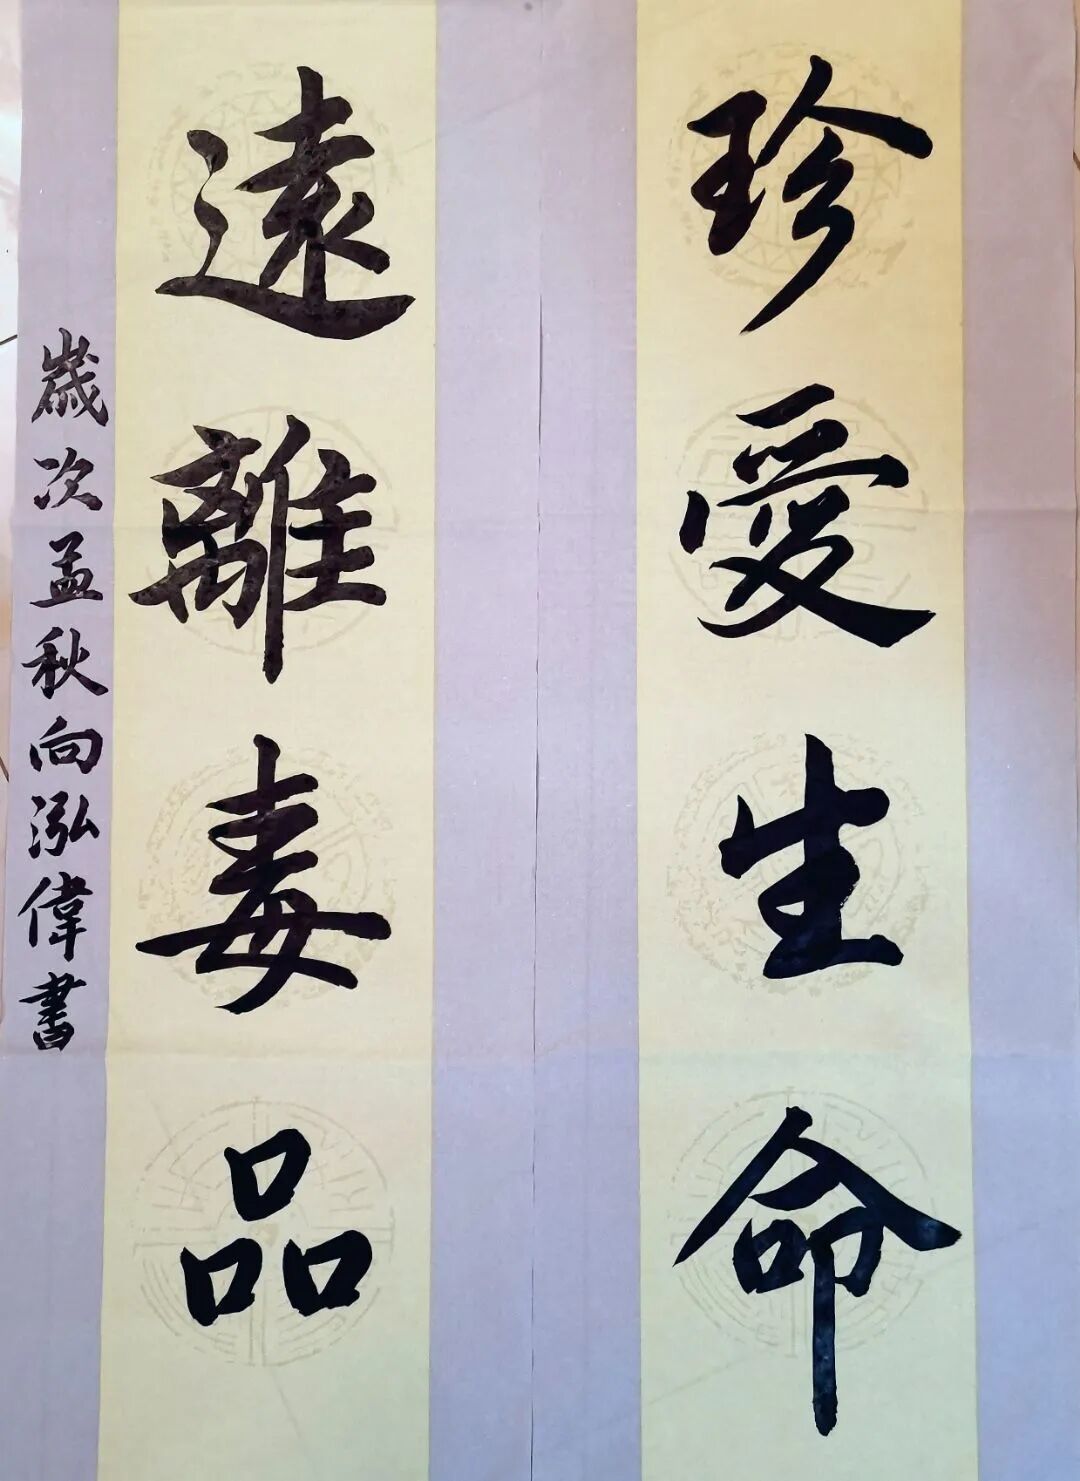 珍愛生命
遠離毒品
歲次孟秋向泓偉書